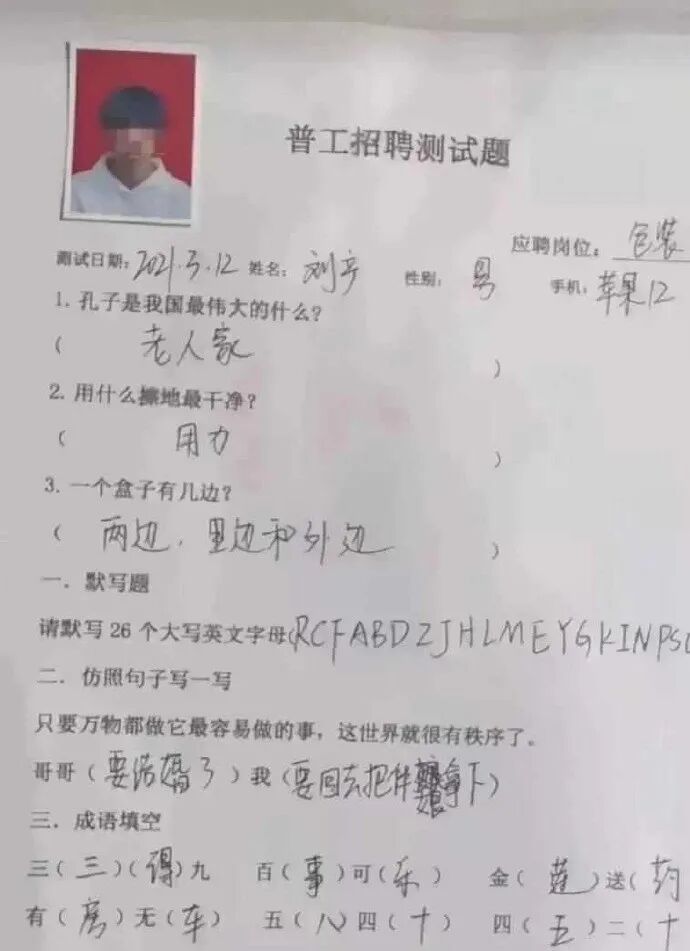 普工招聘测试题
应聘岗位：包装
测试日期：2021.3.12 姓名：刘产 性别：男 手机：苹果12
1. 孔子是我国最伟大的什么？
（老人家）
2. 用什么擦地最干净？
（用力）
3. 一个盒子有几边？
（两边、里边和外边）
一．默写题
请默写26个大写英文字母（RCFABDZJHLMEYGKINPS
二．仿照句子写一写
只要万物都做它最容易做的事，这世界就很有秩序了。
哥哥（要结婚了）我（要回去把伴娘拿下）
三．成语填空
三（三）（得）九 百（事）可（乐） 金（莲）送（药
有（房）无（车） 五（八）四（十） 四（五）二（十